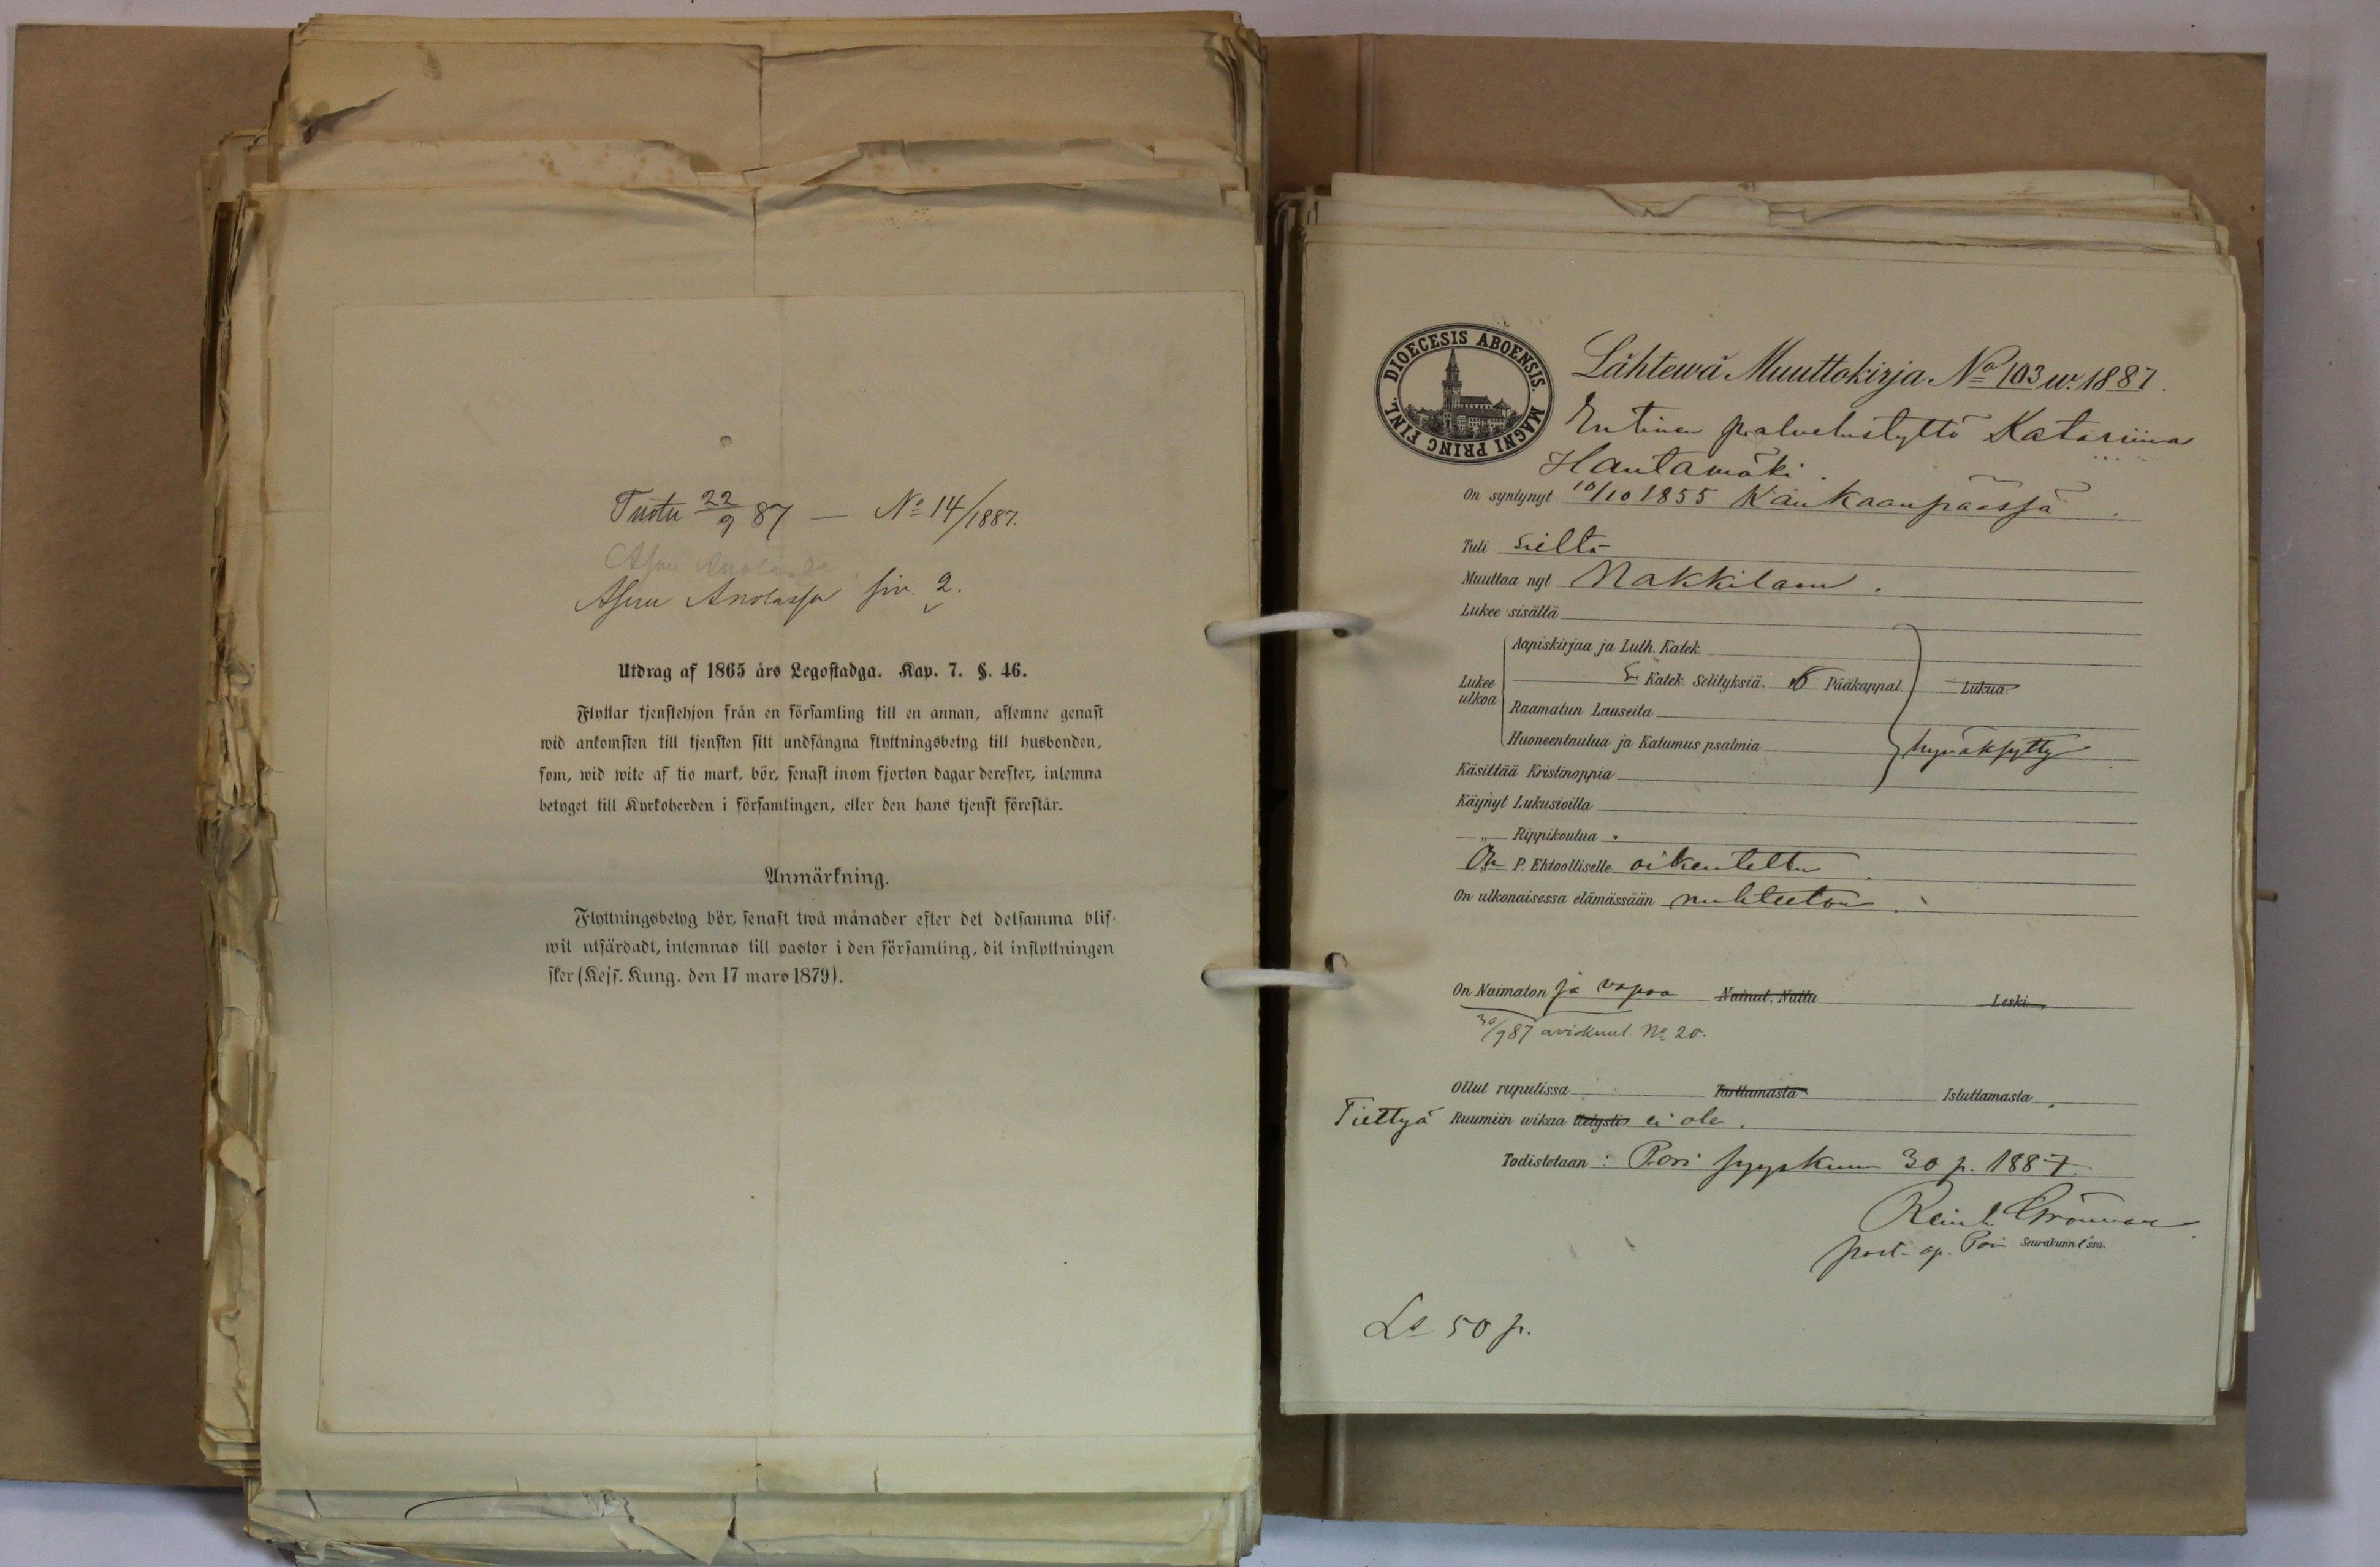 Tuotu 22/9 87 — No 14/1887.
Asuu Anolassa
Asuu Anolassa siv. 2.
Utdrag af 1865 års Legostadga. Kap. 7. §. 46.
Flyttar tjenstehjon från en församling till en annan, aflemne genast
wid ankomsten till tjensten sitt undfångna flyttningsbetyg till husbonden,
som, wid wite af tio mark, bör, senast inom fjorton dagar derefter, inlemna
betyget till Kyrkoherden i församlingen, eller den hans tjenst förestår.
Anmärkning.
Flyttningsbetyg bör, senast twå månader efter det detsamma blif-
wit utfärdadt, inlemnas till pastor i den församling, dit inflyttningen
sker (Kejs. Kung. den 17 mars 1879).
DIOECESIS ABOENSIS. MAGNI PRINC FINL.
Lähtewä Muuttokirja No 103 w. 1887.
Entinen palvelustyttö Katariina
Hautamäki.
On syntynyt 10/10 1855 Kankaanpäässä.
Tuli sieltä
Muuttaa nyt Nakkilaan.
Lukee sisältä
Aapiskirjaa ja Luth. Katek.
Lukee ulkoa
Katek. Selityksiä. Pääkappal. Lukua.
Raamatun Lauseita
Huoneentaulua ja Katumus psalmia hyväksytty
Käsittää Kristinoppia
Käynyt Lukusioilla
„ Rippikoulua
On P. Ehtoolliselle oikeutettu.
On ulkonaisessa elämässään nuhteeton.
On Naimaton ja vapaa Nainut. Nattu Leski.
30/9 87 aviokuul. No 20.
Ollut rupulissa Tarttumasta Istuttamasta.
Tiettyä Ruumiin wikaa ei ole.
Todistetaan: Pori syyskuun 30 p. 1887.
Reinh. Grönvall
past. ap. Pori Seurakunn:ssa.
Ls 50 p.